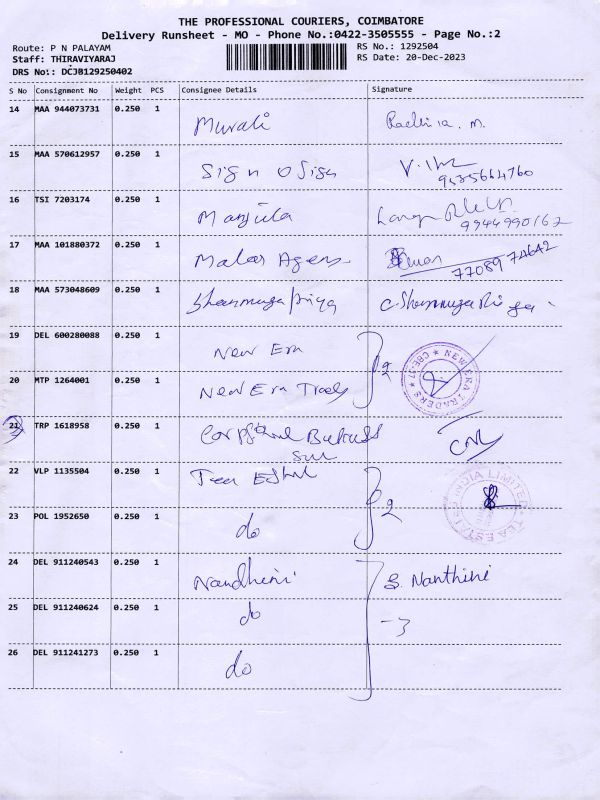 THE PROFESSIONAL COURIERS, COIMBATORE
Delivery Runsheet - MO - Phone No.:0422-3505555 - Page No.:2
Route: P N PALAYAM
RS No.: 1292504
Staff: THIRAVIYARAJ
RS Date: 20-Dec-2023
DRS No:: DCJB129250402
S No Consignment No Weight PCS Consignee Details Signature
14 MAA 944073731 0.250 1 Murali
15 MAA 570612957 0.250 1 Sign O Sign
9535664760
16 TSI 7203174 0.250 1 Manjula
9944990162
17 MAA 101880372 0.250 1 Malar Agens
77089 74642
18 MAA 573048609 0.250 1 Shanmuga priya C. Shanmuga Priya
19 DEL 600280088 0.250 1 New Era
2 NEW ERA TRADERS ★ CBE-37 ★
20 MTP 1264001 0.250 1 New Era
21 TRP 1618958 0.250 1
22 VLP 1135504 0.250 1
2 TEA ESTATES INDIA LIMITED
23 POL 1952650 0.250 1 do
24 DEL 911240543 0.250 1 Nandhini S. Nanthini
25 DEL 911240624 0.250 1 do - 3
26 DEL 911241273 0.250 1 do